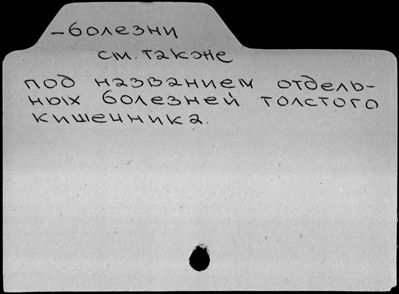 -болезни
см. также
под названием отдель-
ных болезней толстого
кишечника.